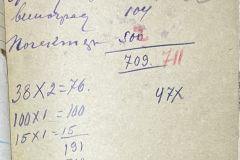 виноград 104
500
709. 711
38 X 2 = 76.
47X
100 X 1 = 100
15 X 1 = 15
191